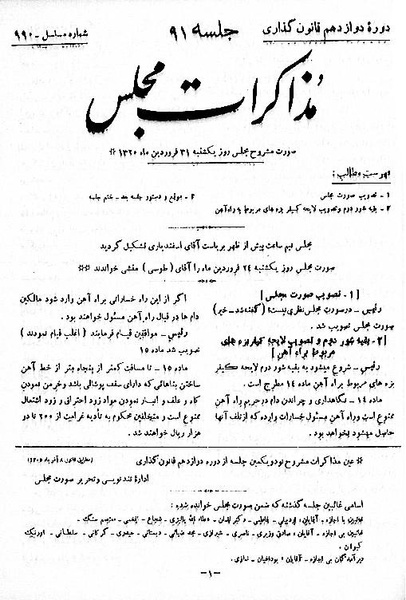 دورهٔ دوازدهم قانون گذاری
جلسه ۹۱
شماره مسلسل - ۹۹۰
مذاکرات مجلس
صورت مشروح مجلس روز یکشنبه ۳۱ فروردین ماه ۱۳۲۰ *
فهرست مطالب:
۱ - تصویب صورت مجلس
۲ - بقیه شور دوم وتصویب لایحه کیفر بزه های مربوط براه آهن
۳ - موقع و دستور جلسه بعد - ختم جلسه
مجلس نیم ساعت پیش از ظهر بریاست آقای اسفندیاری تشکیل گردید
صورت مجلس روز یکشنبه ۲۴ فروردین ماه را آقای (طوسی) منشی خواندند *
[ ۱ - تصویب صورت مجلس ]
رئیس - درصورت مجلس نظری نیست؟ (گفته شد - خیر)
صورت مجلس تصویب شد.
[ ۲ - بقیه شور دوم و تصویب لایحه کیفر بزه های
مربوط براه آهن ]
رئیس - شروع میشود به بقیه شور دوم لایحه کیفر
بزه های مربوط براه آهن ماده ۱۴ مطرح است.
ماده ۱۴ - نگاهداری و چراندن دام در حریم راه آهن
ممنوع است وراه آهن مسئول خسارات وارده که از تلف آنها
حاصل میشود نخواهد بود.
اگر از این راه خساراتی براه آهن وارد شود مالکین
دام ها در قبال راه آهن مسئول خواهند بود.
رئیس - موافقین قیام فرمایند (اغلب قیام نمودند)
تصویب شد ماده ۱۵
ماده ۱۵ - تا مسافت کمتر از پنجاه متر از خط آهن
ساختن بناهائی که دارای سقف پوشالی باشد وخرمن نمودن
کاه و علف و انبار نمودن مواد زود احتراقی و زود اشتعال
ممنوع است و متخلفین محکوم به تأدیه غرامت از ۲۰۰ تا دو
هزار ریال خواهند شد.
* عین مذاکرات مشروح نود و یکمین جلسه از دوره دوازدهم قانون گذاری
اداره تند نویسی و تحریر صورت مجلس
اسامی غائبین جلسه گذشته که ضمن صورت مجلس خوانده شده:
غائبین با اجازه - آقایان:
غائبین بی اجازه - آقایان:
دیر آمدگان بی اجازه - آقایان:
- ۱ -